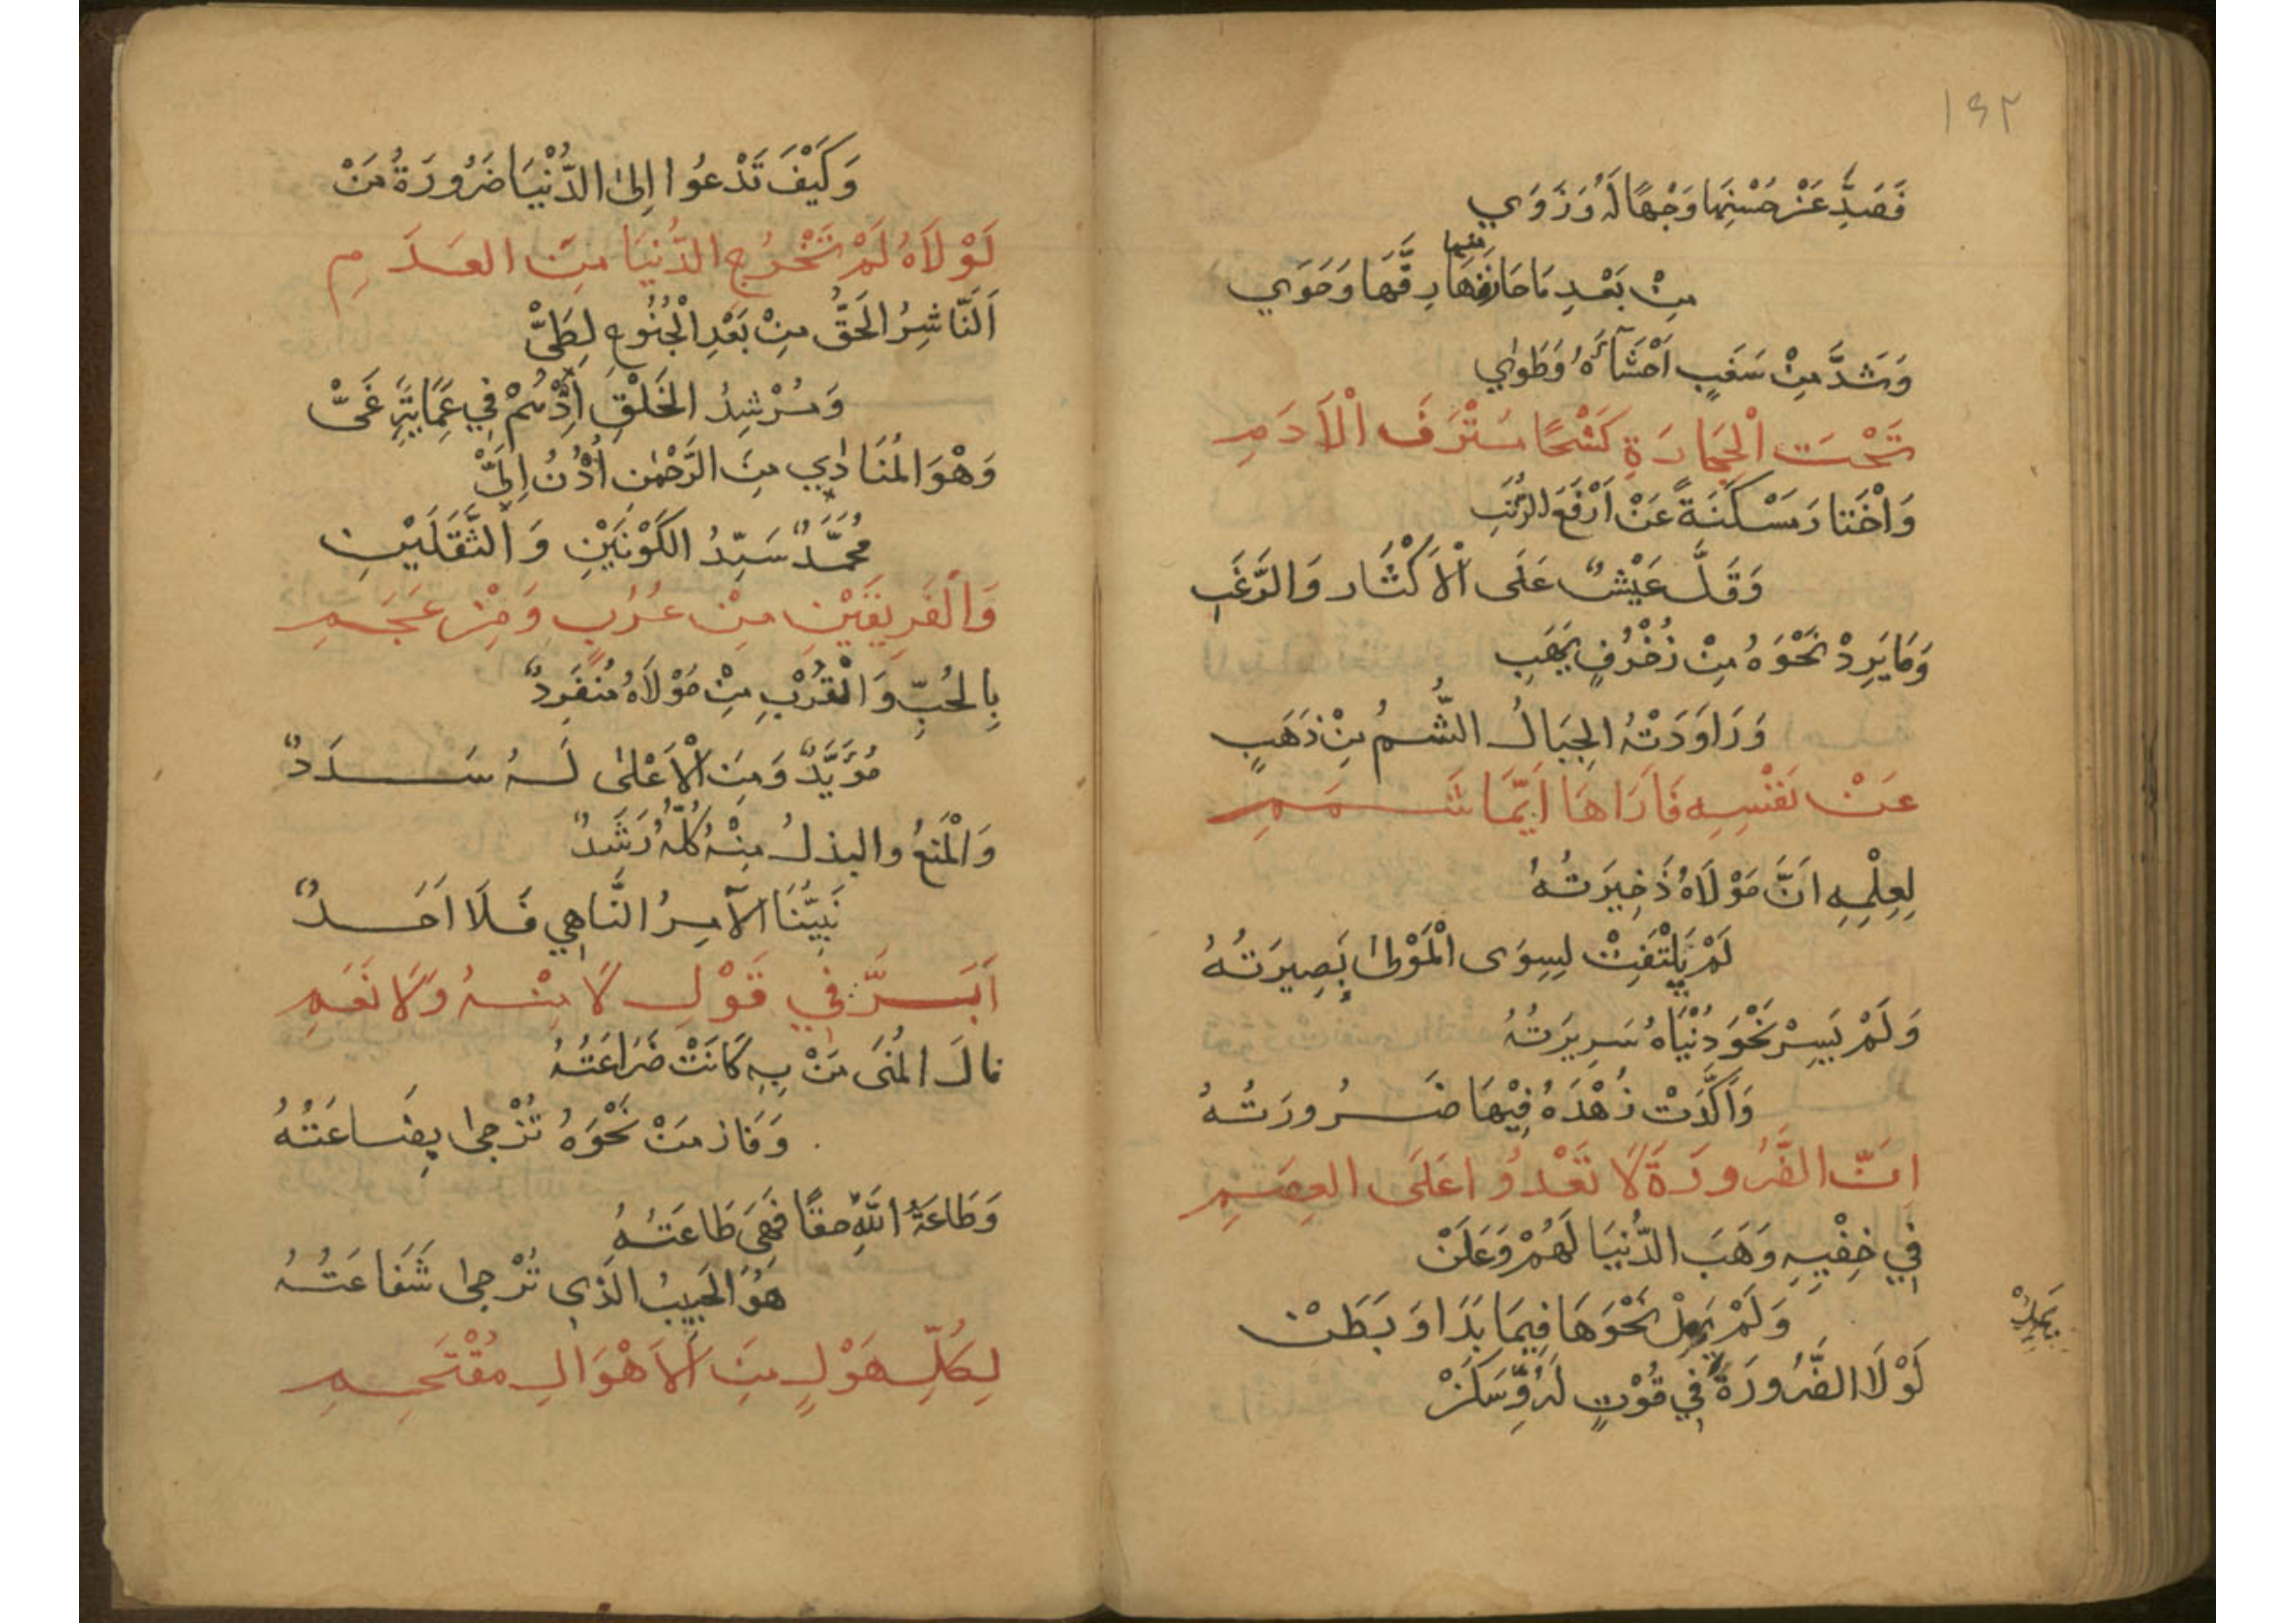 ١٤٢
فَصَدَّ عَنْ حُسْنِهَا وَجْهًا لَهُ وَزَوَي
مِنْ بَعْدِ مَا حَازَ مِنْهَا رِقَّهَا وَحَوَي
وَشَدَّ مِنْ سَغَبٍ اَحْشَآءَهُ وَطَوٰي
تَحْتَ الْحِجَارَةِ كَشْحًا مُتْرَفَ الْاَدَمِ
وَاخْتَارَ مَسْكَنَةً عَنْ اَرْفَعِ الرُّتَبِ
وَقَلَّ عَيْشٌ عَلَى الْاَكْثَارِ وَالرَّغَبِ
وَمَا يَرِدْ نَحْوَهُ مِنْ زُخْرُفٍ يَهَبِ
وَرَاوَدَتْهُ الجِبَالُ الشُّمُ مِنْ ذَهَبٍ
عَنْ نَفْسِهِ فَارَاهَا اَيَّمَا شَمَمِ
لِعِلْمِهِ اَنَّ مَوْلَاهُ ذَخِيرَتُهُ
لَمْ يَلْتَفِتْ لِسِوَى الْمَوْلٰى بَصِيرَتُهُ
وَلَمْ يَسِرْ نَحْوَ دُنْيَاهُ سَرِيرَتُهُ
وَاَكَّدَتْ زُهْدَهُ فِيْهَا ضَرُورَتُهُ
اِنَّ الضَّرُورَةَ لَا تَعْدُوا عَلَى العِصَمِ
فِي خِفْيِهِ وَهَبَ الدُّنْيَا لَهُمْ وَعَلَنْ
وَلَمْ يَمِلْ نَحْوَهَا فِيمَا بَدَا وَبَطَنْ
يَمِلْ
لَوْلَا الضَّرُورَةُ فِي قُوْتٍ لَهُ وَسَكَنْ
وَكَيْفَ تَدْعُوا اِلىٰ الدُّنْيَا ضَرُورَةُ مَنْ
لَوْلَاهُ لَمْ تَخْرُجِ الدُّنْيَا مِنَ العَدَمِ
اَلنَّاشِرُ الحَقَّ مِنْ بَعْدِ الْجُنُوحِ لِطَيّْ
وَمُرْشِدُ الخَلْقِ اِذْ هُمْ فِي عِمَايَةِ غَيّْ
وَهْوَ المُنَادٰي مِنَ الرَّحْمٰنِ اُدْنُ اِلَيّْ
مُحَمَّدٌ سَيِّدُ الكَوْنَيْنِ وَالثَّقَلَيْنِ
وَالْفَرِيقَيْنِ مِنْ عُرْبٍ وَمِنْ عَجَمِ
بِالحُبِّ وَالْقُرْبِ مِنْ مَوْلَاهُ مُنْفَرِدٌ
مُؤَيَّدٌ وَمِنَ الْاَعْلىٰ لَهُ سَدَدٌ
وَالْمَنْعُ والبذلُ مِنْهُ كُلُّهُ رَشَدٌ
نَبِيُّنَا الآمِرُ النَّاهِي فَلَا اَحَدٌ
اَبَرَّ فِي قَوْلِ لَا مِنْهُ وَلَا نَعَمِ
نالَ المُنَى مَنْ بِهِ كَانَتْ ضَرَاعَتُهُ
وَفَازَ مَنْ نَحْوَهُ تُزْجىٰ بِضَاعَتُهُ
وَطَاعَةُ اللّٰهِ حقًا فَهْيَ طَاعَتُهُ
هُوَ الحَبِيبُ الَّذِي تُرْجىٰ شَفَاعَتُهُ
لِكُلِّ هَوْلٍ مِنَ الاَهْوَالِ مُقْتَحِمِ